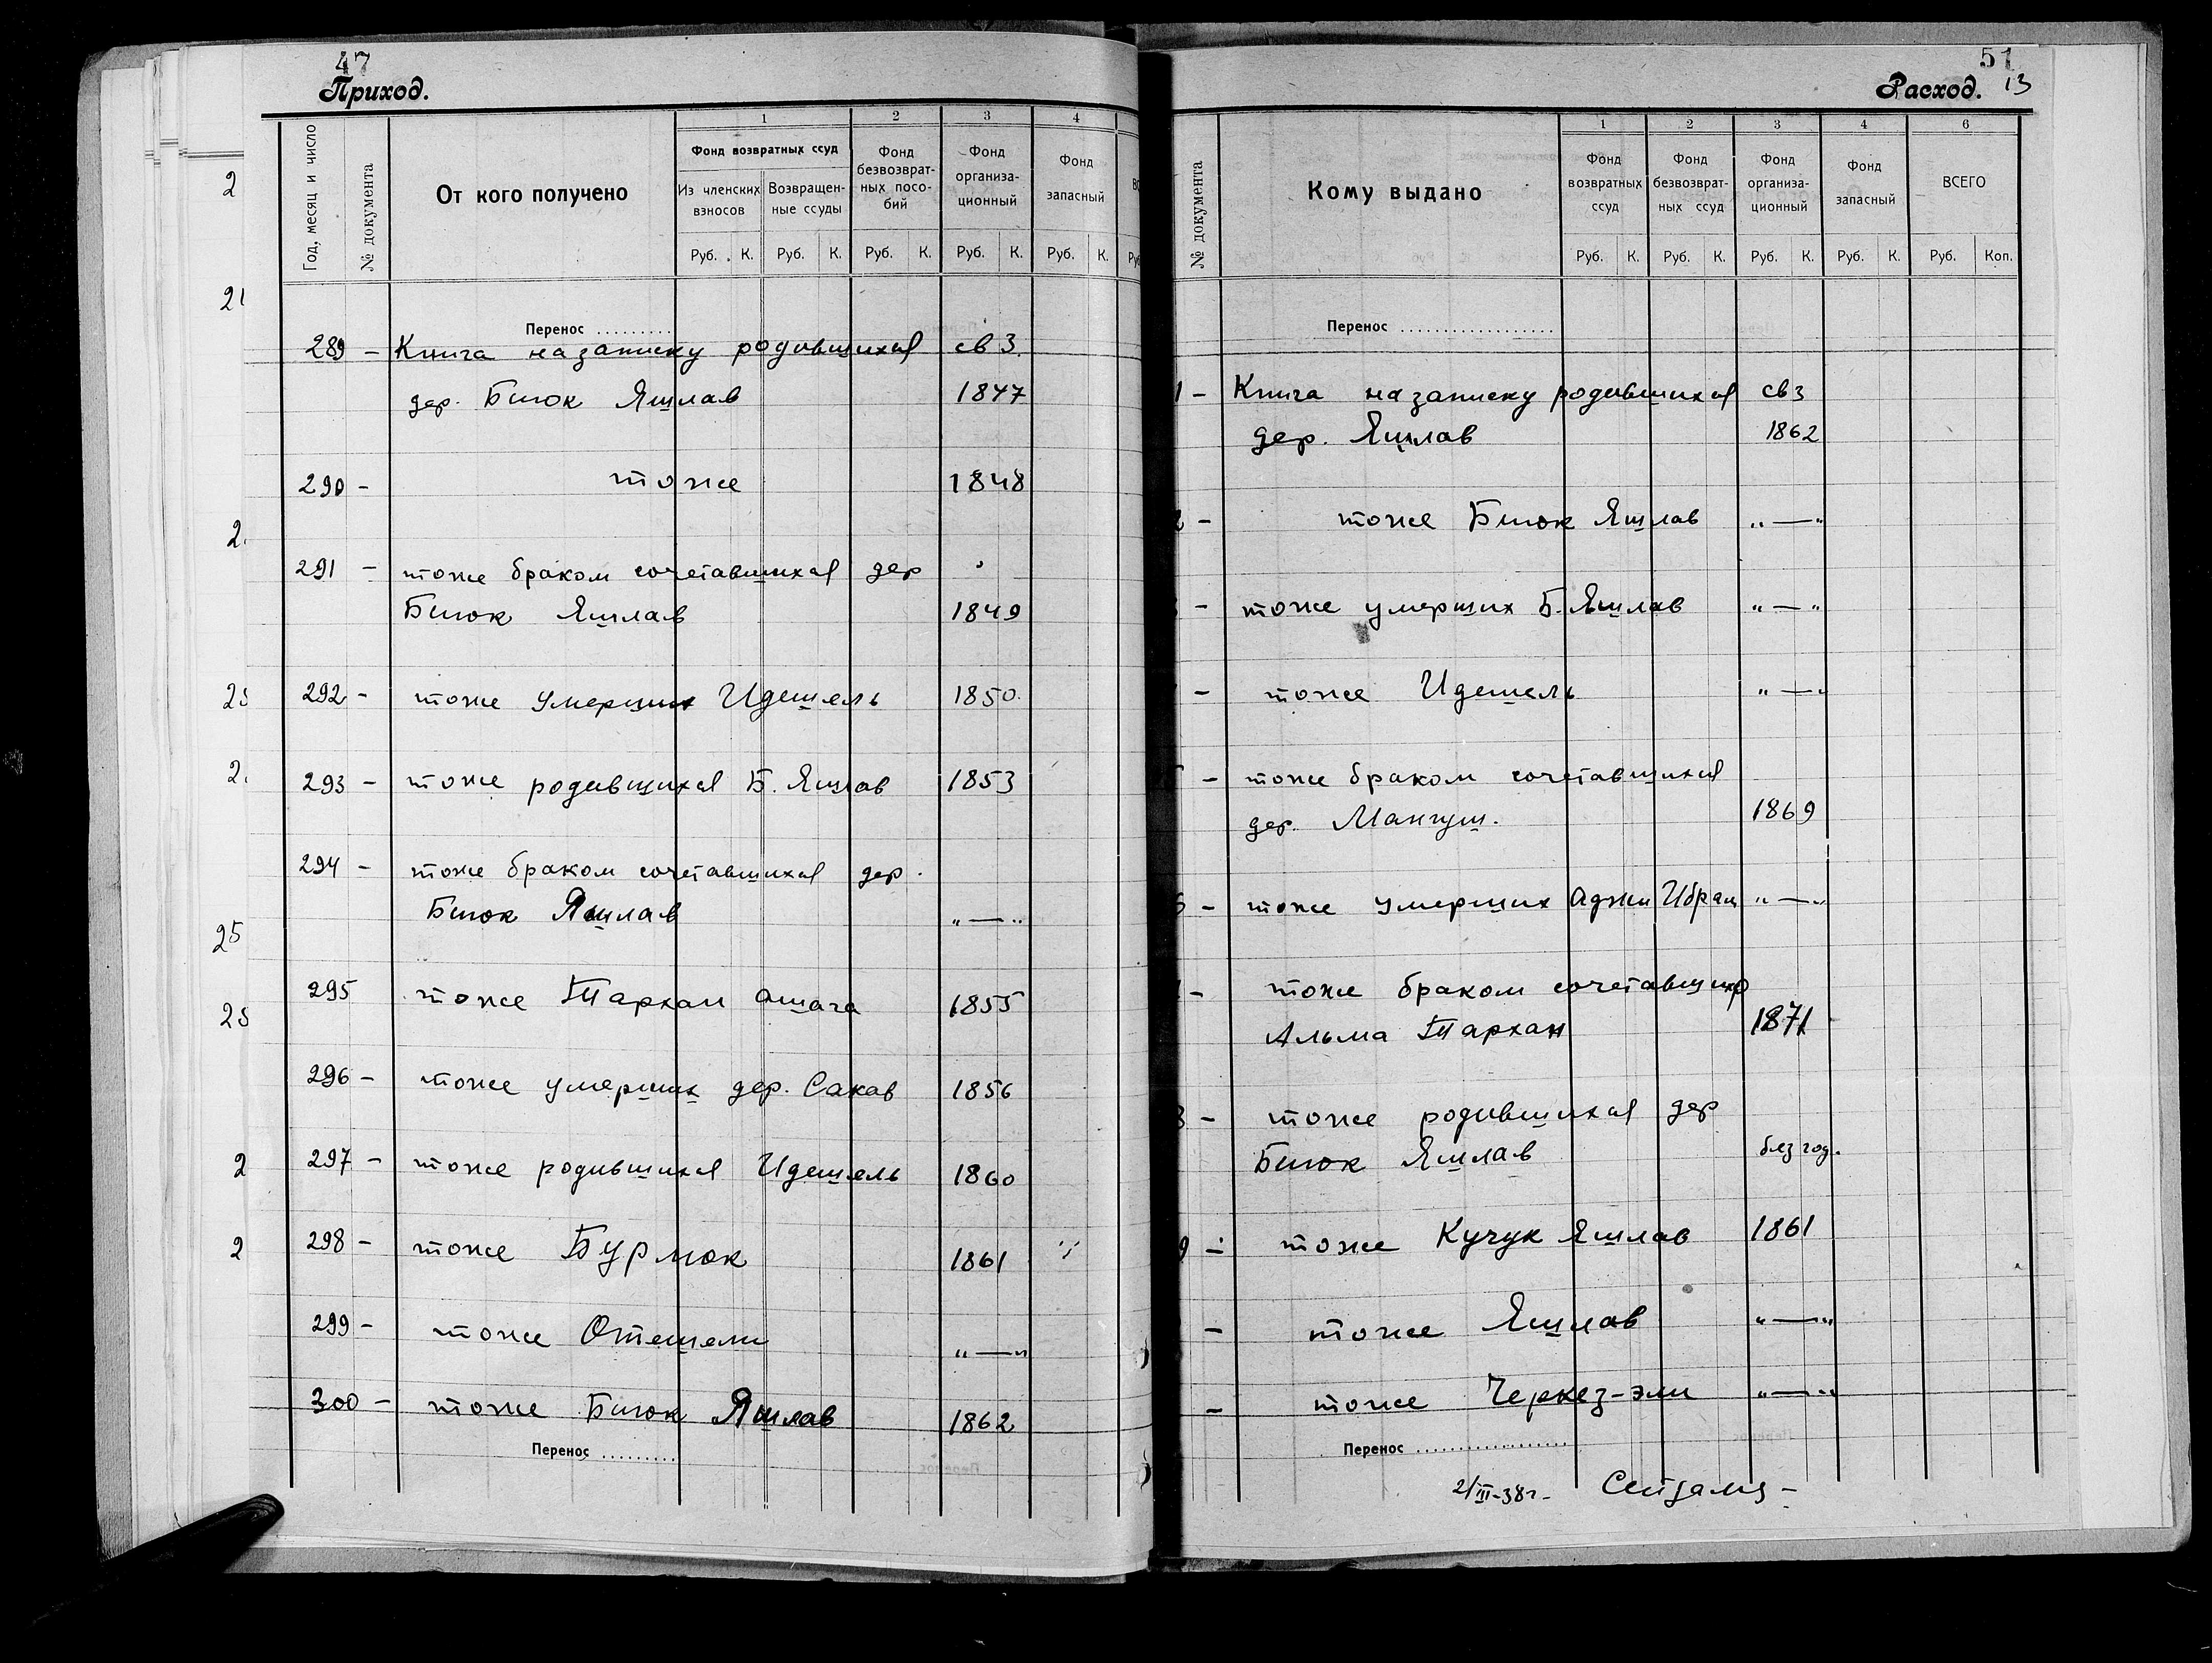 47
Приход.
Год, месяц и число
№ документа
От кого получено
1
Фонд возвратных ссуд
Из членских взносов
Возвращен-
ные ссуды
2
Фонд
безвозврат-
ных посо-
бий
3
Фонд
организа-
ционный
4
Фонд
запасный
Руб. К. Руб. К. Руб. К. Руб. К. Руб. К.
Перенос
289 – Книга на записку родившихся св 3.
дер. Биюк Яшлав 1847
290 – тоже 1848
291 – тоже браком сочетавшихся дер
Биюк Яшлав 1849
292 – тоже умерших Идешель 1850.
293 – тоже родившихся Б. Яшлав 1853
294 – тоже браком сочетавшихся дер.
Биюк Яшлав „ — „
295 тоже Тархан ашага 1855
296 – тоже умерших дер. Сакав 1856
297 – тоже родившихся Идешель 1860
298 – тоже Бурлюк 1861
299 – тоже Отешели „ — „
300 – тоже Биюк Яшлав 1862
Перенос
2
21
2.
2
25
25
2
2
51
Расход. 13
№ документа
Кому выдано
1
Фонд
возвратных
ссуд
2
Фонд
безвозврат-
ных ссуд
3
Фонд
организа-
ционный
4
Фонд
запасный
6
ВСЕГО
Руб. К. Руб. К. Руб. К. Руб. К. Руб. Коп.
Перенос
1 – Книга на записку родившихся св 3
дер. Яшлав 1862
2 – тоже Биюк Яшлав „ — „
– тоже умерших Б. Яшлав „ — „
– тоже Идешель „ — „
– тоже браком сочетавшихся
дер. Мангуш. 1869
6 – тоже умерших Аджи Ибрам „ — „
– тоже браком сочетавшихся
Альма Тархан 1871
8 – тоже родившихся дер
Биюк Яшлав без год.
9 – тоже Кучук Яшлав 1861
– тоже Яшлав „ — „
– тоже Черкез-эли „ — „
Перенос
2/III-38г-